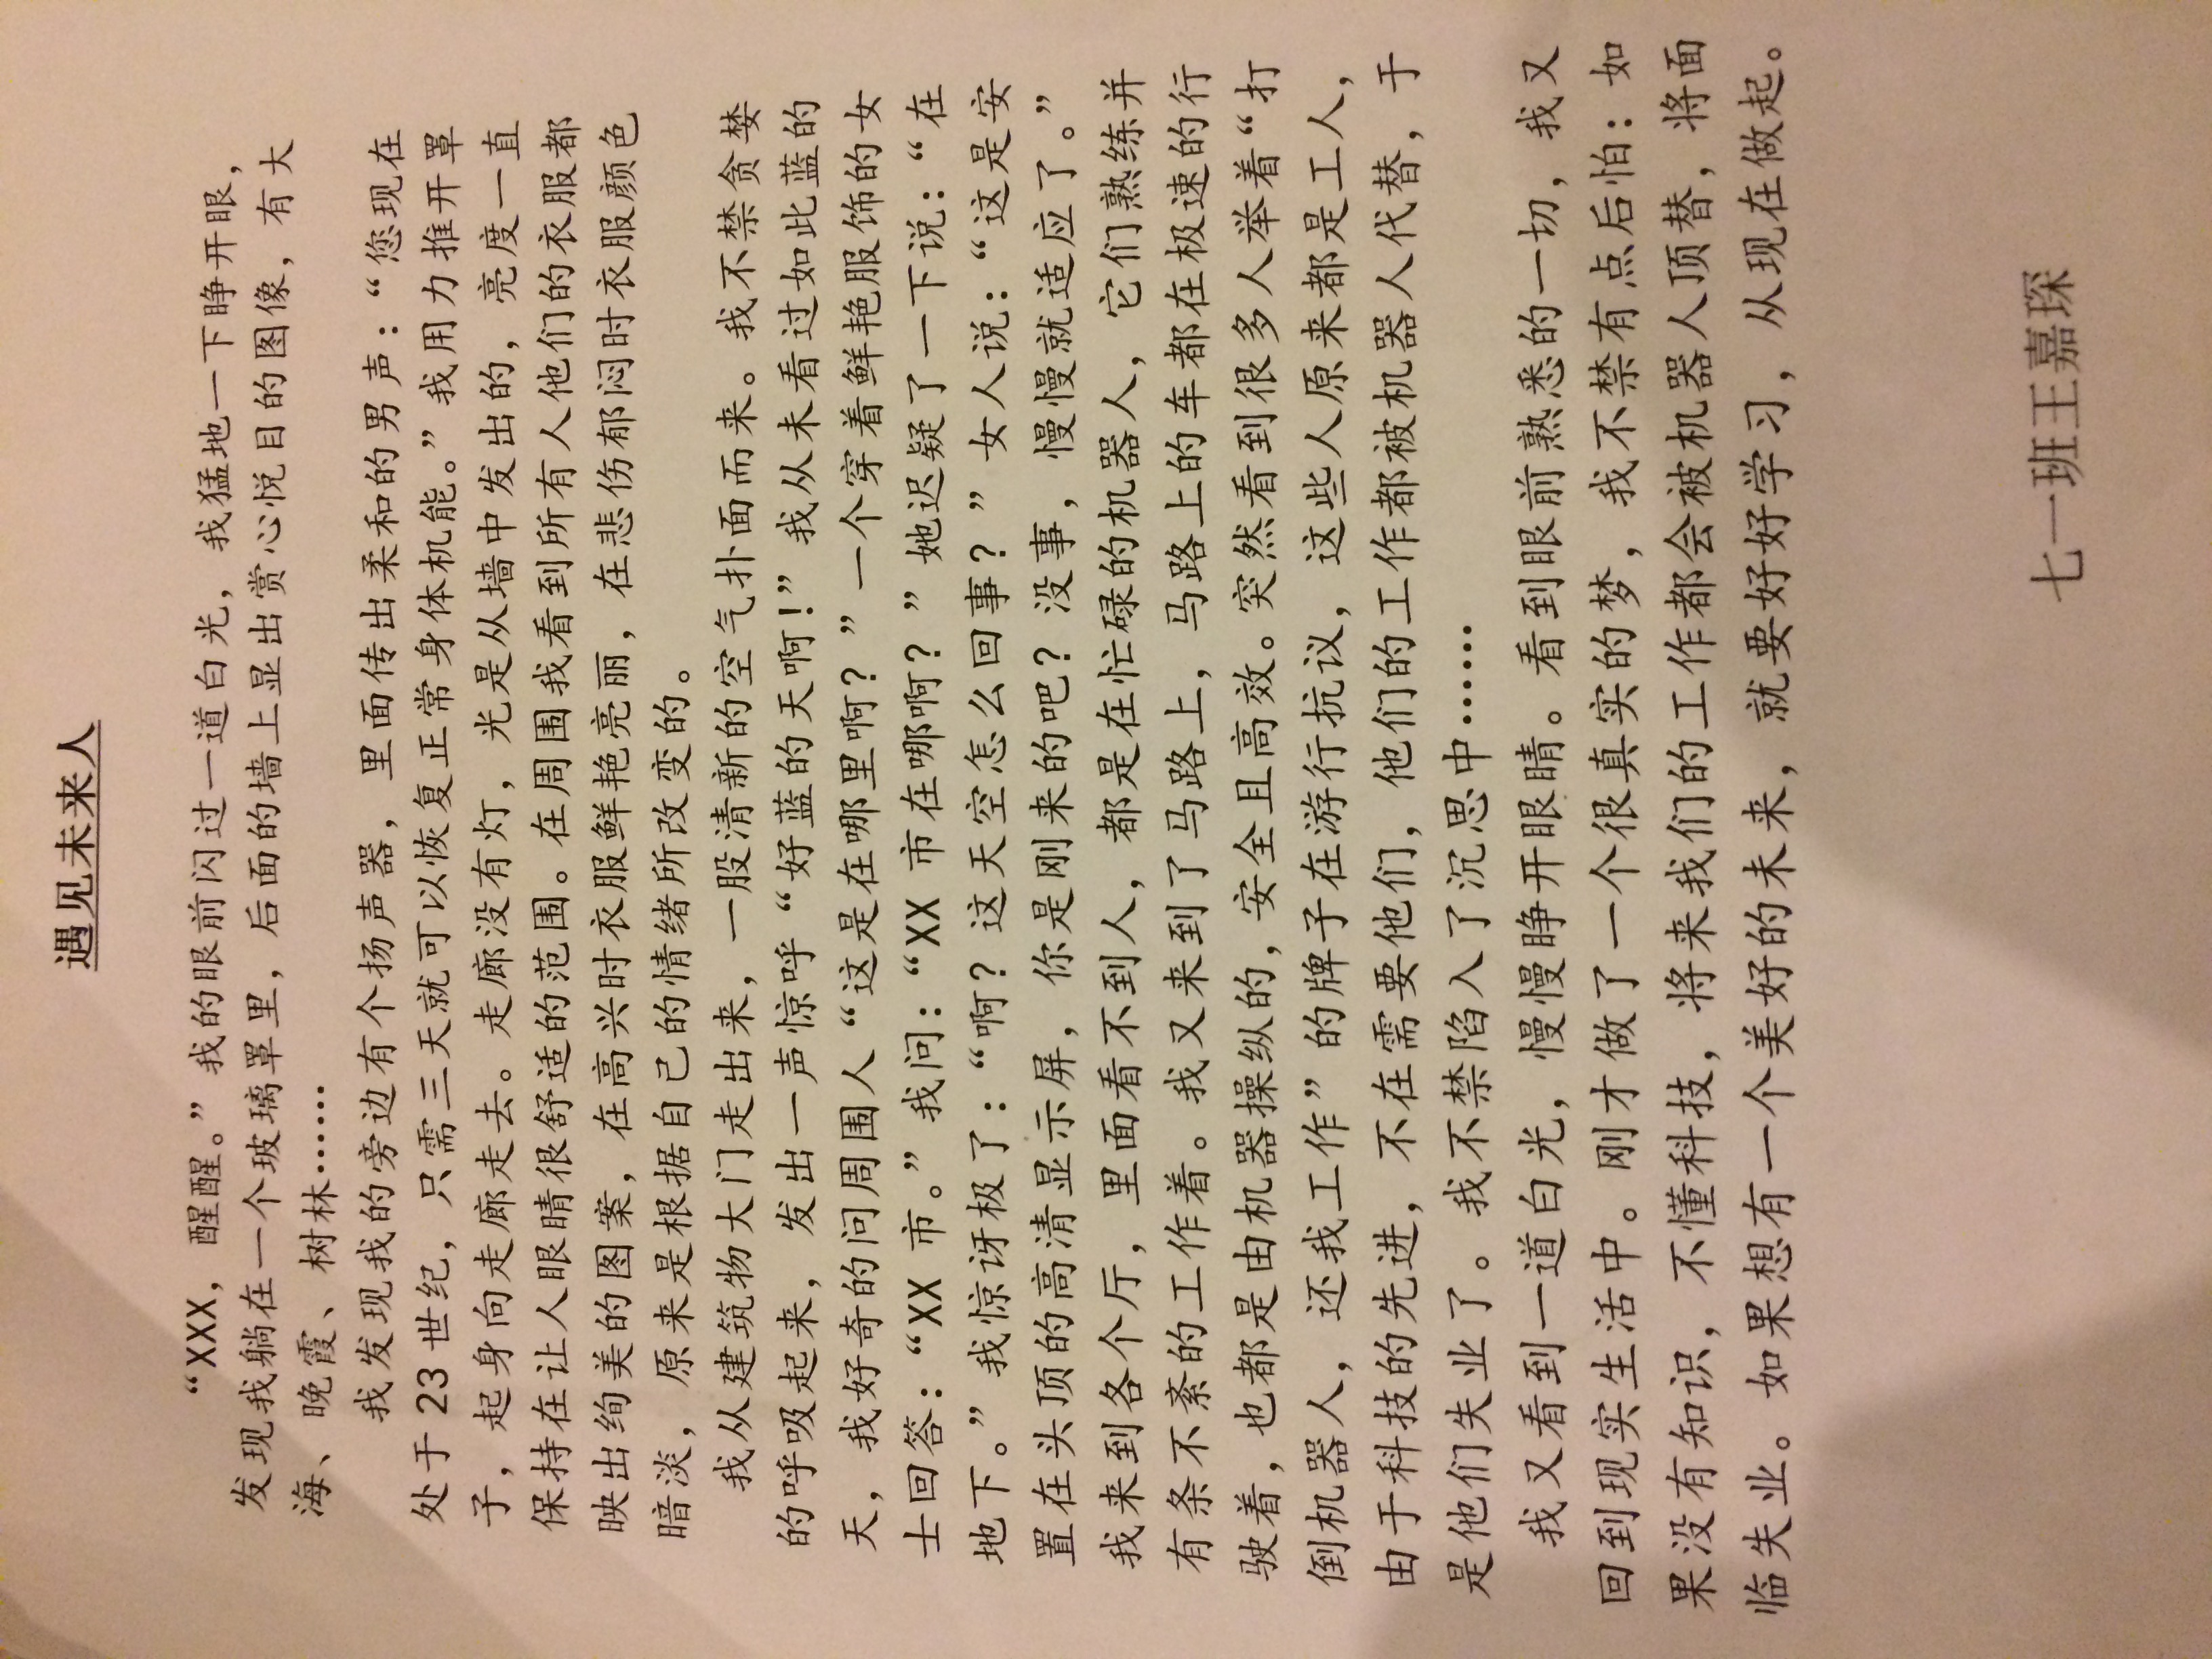 遇见未来人
“XXX，醒醒。”我的眼前闪过一道白光，我猛地一下睁开眼，
发现我躺在一个玻璃罩里，后面的墙上显出赏心悦目的图像，有大
海、晚霞、树林……
我发现我的旁边有个扬声器，里面传出柔和的男声：“您现在
处于 23 世纪，只需三天就可以恢复正常身体机能。”我用力推开罩
子，起身向走廊走去。走廊没有灯，光是从墙中发出的，亮度一直
保持在让人眼睛很舒适的范围。在周围我看到所有人他们的衣服都
映出绚美的图案，在高兴时衣服鲜艳亮丽，在悲伤郁闷时衣服颜色
暗淡，原来是根据自己的情绪所改变的。
我从建筑物大门走出来，一股清新的空气扑面而来。我不禁贪婪
的呼吸起来，发出一声惊呼“好蓝的天啊！”我从未看过如此蓝的
天，我好奇的问周围人“这是在哪里啊？”一个穿着鲜艳服饰的女
士回答：“XX 市。”我问：“XX 市在哪啊？”她迟疑了一下说：“在
地下。”我惊讶极了：“啊？这天空怎么回事？”女人说：“这是安
置在头顶的高清显示屏，你是刚来的吧？没事，慢慢就适应了。”
我来到各个厅，里面看不到人，都是在忙碌的机器人，它们熟练并
有条不紊的工作着。我又来到了马路上，马路上的车都在极速的行
驶着，也都是由机器操纵的，安全且高效。突然看到很多人举着“打
倒机器人，还我工作”的牌子在游行抗议，这些人原来都是工人，
由于科技的先进，不在需要他们，他们的工作都被机器人代替，于
是他们失业了。我不禁陷入了沉思中……
我又看到一道白光，慢慢睁开眼睛。看到眼前熟悉的一切，我又
回到现实生活中。刚才做了一个很真实的梦，我不禁有点后怕：如
果没有知识，不懂科技，将来我们的工作都会被机器人顶替，将面
临失业。如果想有一个美好的未来，就要好好学习，从现在做起。
七一班王嘉琛